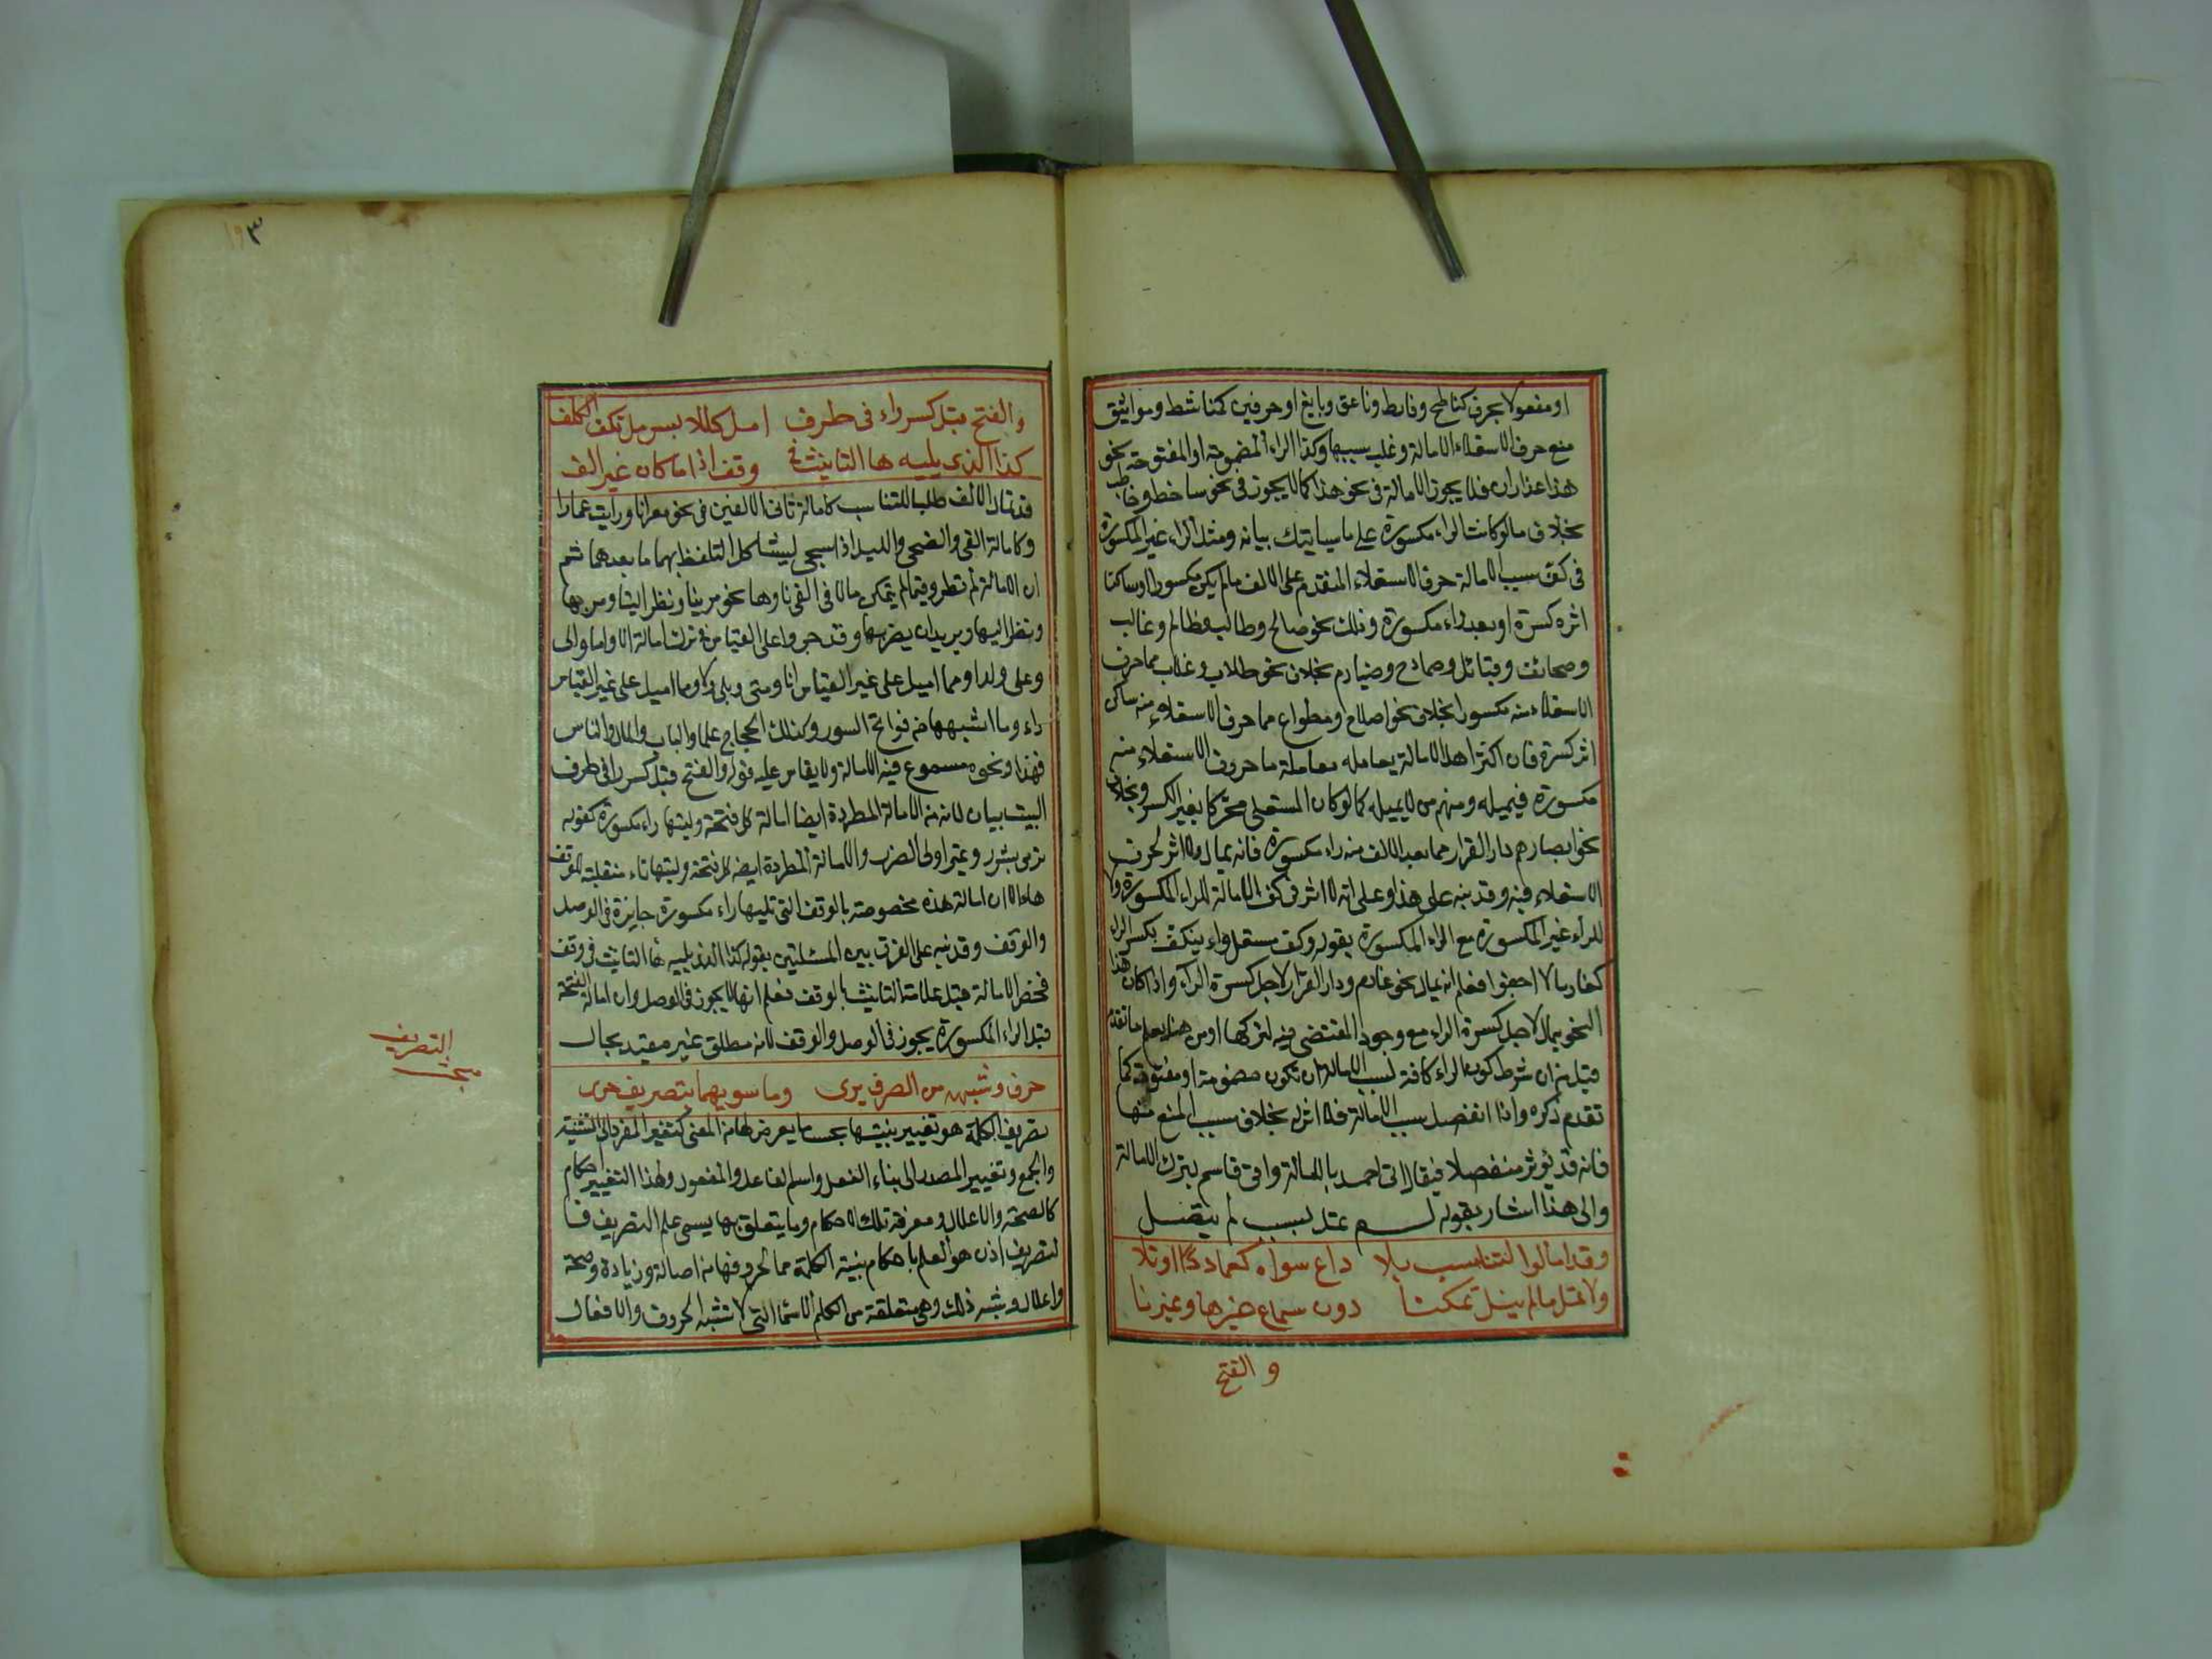 او مفعولا بحرف كناطح وفابط وناعق وبابغ او حرفين كمناشط ومواثيق
منع حرف الاستعلاء الامالة وغلب سببها وكذا الراء المضمومة او المفتوحة نحو
هذا عذاران فلا يجوز الامالة فى نحو هذا كما لا يجوز فى نحو ساخط وخاطب
بخلاف ما لو كانت الراء مكسورة على ما سياتيك بيانه ومثل الراء غير المكسورة
فى كف سبب الامالة حرف الاستعلاء المتقدم على الالف مالم يكن مكسورا او ساكنا
اثر كسرة او بعد راء مكسورة وذلك نحو صالح وطالب وظالم وغالب
وصحائف وقبائل وصمادح وضيارم بخلاف نحو طلاب وغلاب مما حرف
الاستعلاء منه مكسورا بخلاف نحو اصلاح ومطواع مما حرف الاستعلاء منه ساكن
اثر كسرة فان اكثر اهل الامالة يعامله معاملة ما حروف الاستعلاء منه
مكسورة فيميله ومنهم من لا يميله كما لو كان المستعلى محركا بغير الكسر وبخلاف
نحو ابصارهم دار القرار مما بعد الالف منه راء مكسورة فانه يمال ولا اثر لحرف
الاستعلاء فيه وقد نبه على هذا وعلى انه لا اثر فى كف الامالة للراء المكسورة ولا
للراء غير المكسورة مع الراء المكسورة بقوله وكف مستعل وراء ينكف بكسر الراء
كغارما لا اجفوا فعلم انه يمال نحو غارم ودار القرار لاجل كسرة الراء واذا كان هذا
النحو يمال لاجل كسرة الراء مع وجود المقتضى فيه لتركها اومن هنا يعلم ما تقدم
قبل من ان شرط كون الراء كافة لسبب الامالة ان تكون مضمومة او مفتوحة كما
تقدم ذكره واذا انفصل سبب الامالة فلا اثر له بخلاف سبب المنع منها
فانه قد يؤثر منفصلا فيقال اتى احمد بالامالة واتى قاسم بترك الامالة
والى هذا اشار بقوله ولا تمل لسبب لم يتصل
وقد امالوا لتناسب بلا داع سواه كعمادا اوتلا
ولا تمل مالم ينل تمكنا دون سماع غيرها وغيرنا
والفتح
١٩٣
والفتح قبل كسر راء فى طرف امل كللايسر مل تكف الكلف
كذا الذى يليه ها التانيث فى وقف اذا ما كان غير الف
قد تمال الالف طلبا للتناسب كامالة ثانى الالفين فى نحو معزانا ورايت عمادا
وكامالة القى والضحى والليل اذا سجى ليشاكل التلفظ بهما ما بعدهما ثم
ان الامالة لم تطرد فيما لم يتمكن مالا فى القى نا وها نحو مر بنا ونظر الينا ومر بها
ونظر اليها ويريد ان يضربها وقد جروا على القياس فى ترك امالة الا واما والى
وعلى ولدا ومما اميل على غير القياس انا ومتى وبلى ولا ومما اميل على غير القياس
راء وما اشبهها من فواتح السور وكذلك الحجاج علما والباب والمال والناس
فهذا ونحوه مسموع فيه الامالة ولا يقاس عليه قوله والفتح قبل كسر را فى طرف
البيت بيان لان من الامالة المطردة ايضا امالة كل فتحة وليتها راء مكسورة كقوله
ترمى بشرر وغير اولى الضرر والامالة المطردة ايضا كل فتحة وليتها تاء منقلبة للوقف
هاء الا ان امالة هذه مخصوصة بالوقف التى تليها راء مكسورة جايزة فى الوصل
والوقف وقد نبه على الفرق بين المسئلتين بقوله كذا الذى يليه ها التانيث فى وقف
فخص الامالة قبل علامة التانيث بالوقف فعلم انها لا يجوز فى الوصل وان امالة الفتحة
قبل الراء المكسورة يجوز فى الوصل والوقف لانه مطلق غير مقيد بحال
حرف وشبهه من الصرف برى وما سويهما بتصريف حرى
تصريف الكلمة هو تغيير بنيتها بحسب ما يعرض لها من المعنى كتغيير المفرد الى التثنية
والجمع وتغيير المصدر الى بناء الفعل واسم الفاعل والمفعول ولهذا التغيير احكام
كالصحة والاعلال ومعرفة تلك الاحكام وما يتعلق بها يسمى علم التصريف فا
لتصريف اذن هو العلم باحكام بنية الكلمة مما لحروفها من اصالة وزيادة وصحة
واعلال وشبه ذلك وهى متعلقة من الكلم الاسماء التى لا تشبه الحروف والافعال
التصريف
مبحث